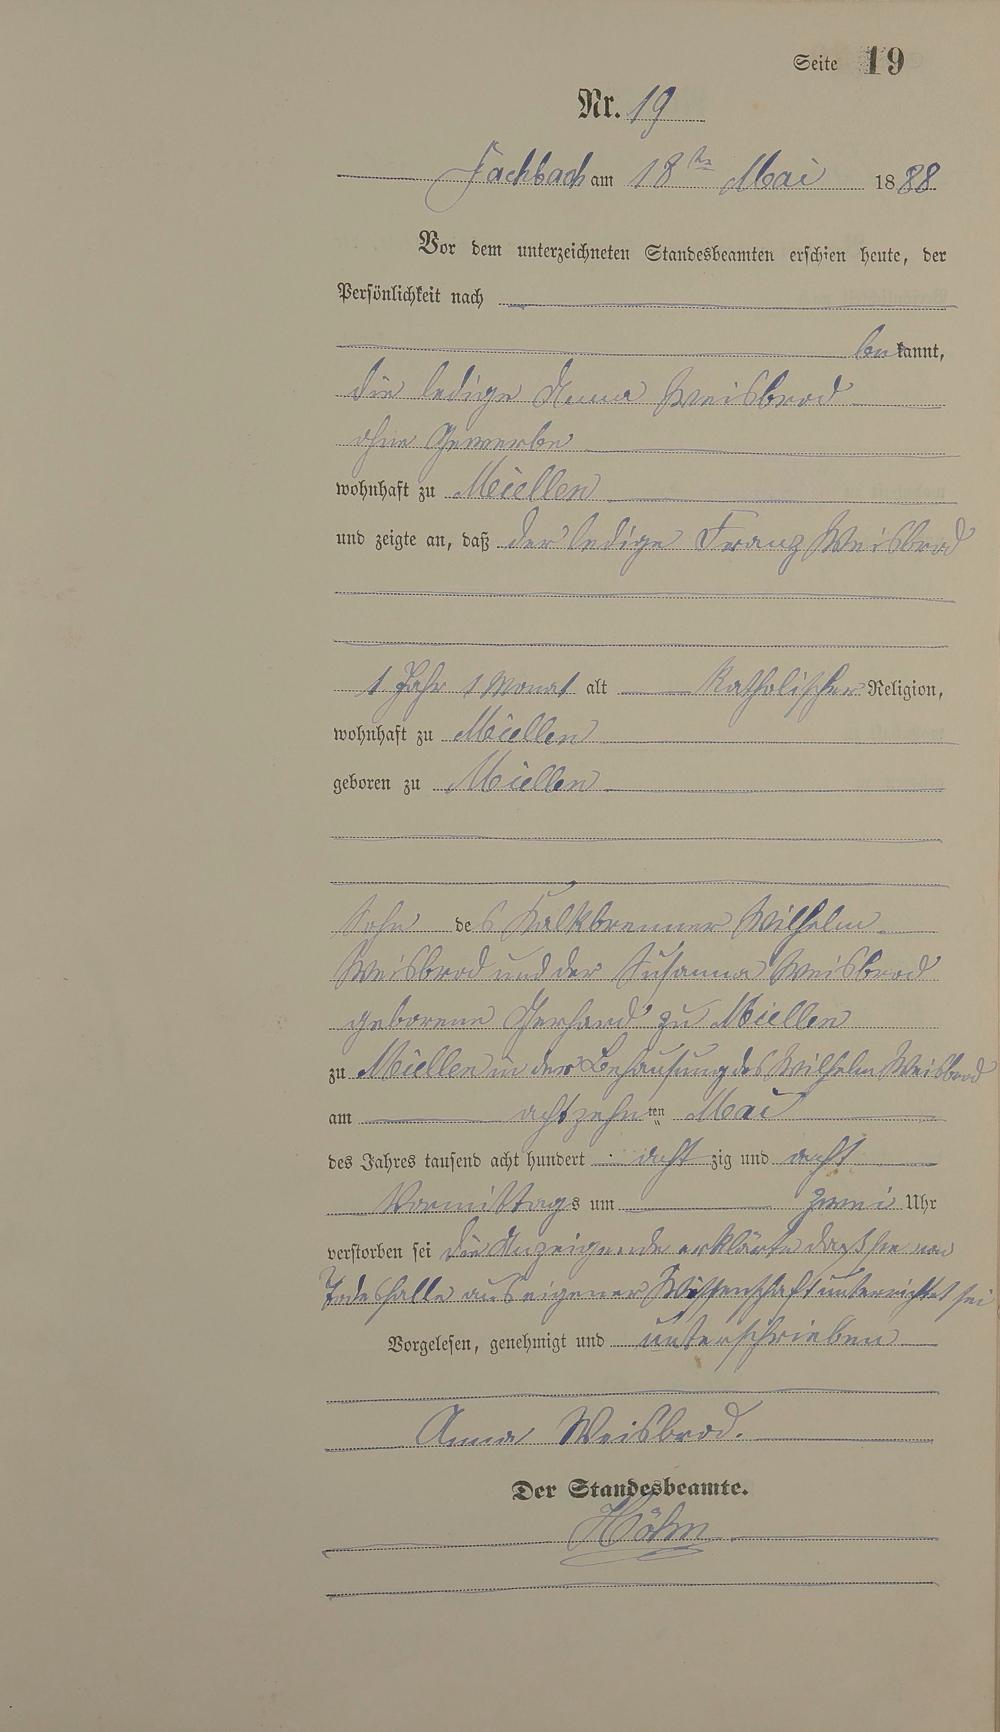 Seite 19
Nr. 19
Fachbach am 18ten Mai 1888
Vor dem unterzeichneten Standesbeamten erschien heute, der
Persönlichkeit nach
bekannt,
die ledige Anna Weisbrod
ohne Gewerbe
wohnhaft zu Miellen
und zeigte an, daß der ledige Franz Weisbrod
1 Jahr 1 Monat alt katholischer Religion,
wohnhaft zu Miellen
geboren zu Miellen
Sohn des Kalkbrenner Wilhelm
Weisbrod und der Susanna Weisbrod
geborene Gerhard zu Miellen
zu Miellen in der Behausung des Wilhelm Weisbrod
am achtzehnten Mai
des Jahres tausend acht hundert achtzig und acht
Vormittags um zwei Uhr
verstorben sei die Anzeigende erklärte daß sie vom
Todesfalle aus eigener Wissenschaft unterrichtet sei
Vorgelesen, genehmigt und unterschrieben
Anna Weisbrod.
Der Standesbeamte.